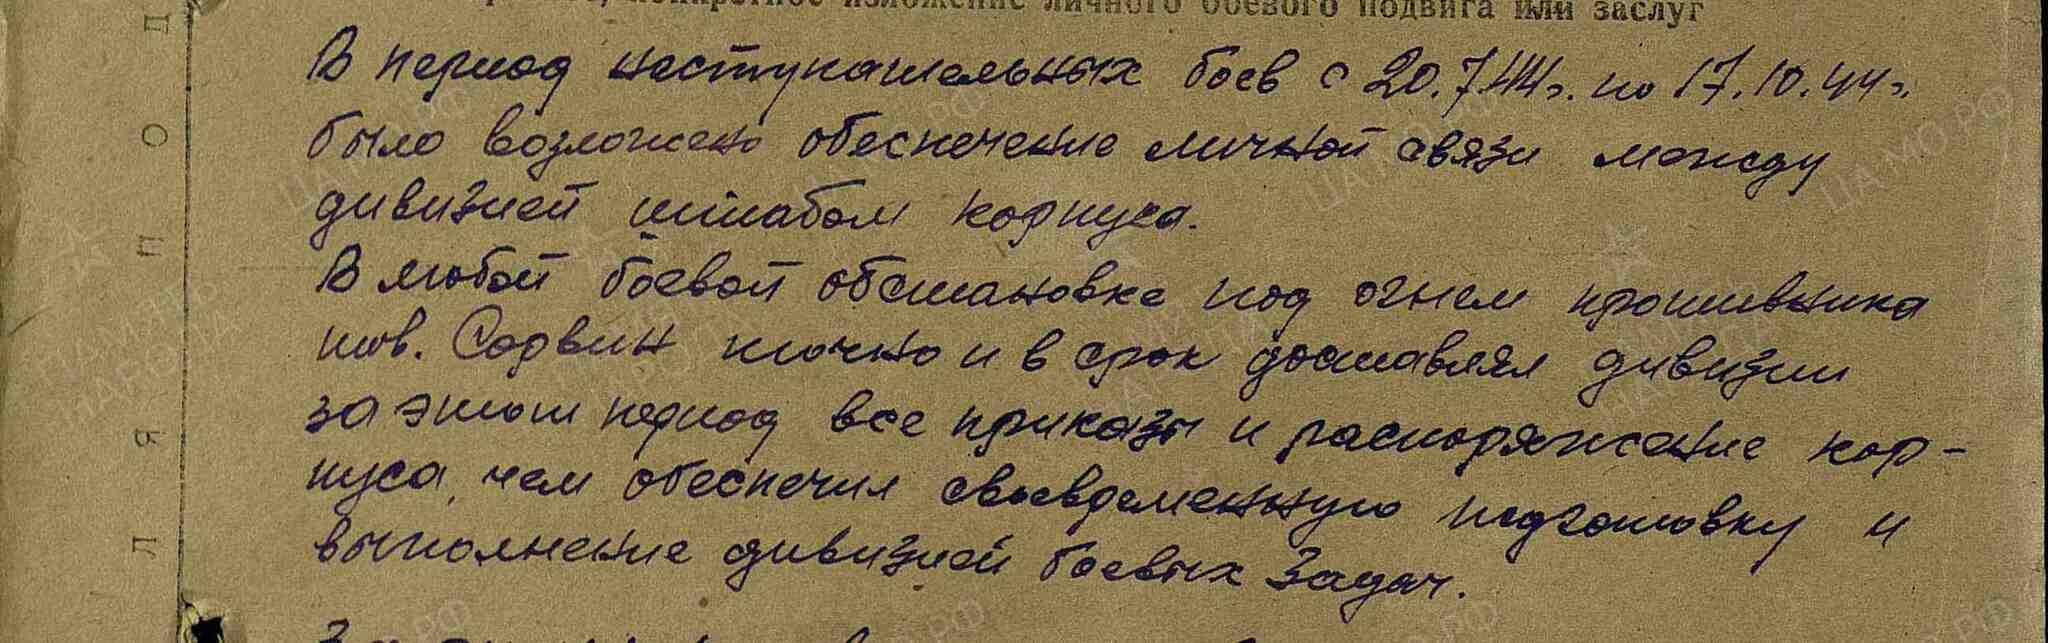 конкретное изложение личного боевого подвига или заслуг
В период наступательных боев с 20.7.44г. по 17.10.44г.
было возложено обеспечение личной связи между
дивизией штабом корпуса.
В любой боевой обстановке под огнем противника
тов. Сорвин точно и в срок доставлял дивизии
за этот период все приказы и распоряжение кор-
пуса, чем обеспечил своевременную подготовку и
выполнение дивизией боевых задач.